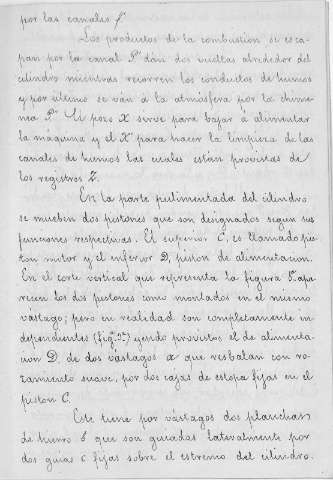 por las canales f
Los productos de la combustion se esca-
pan por la canal P dán dos vueltas alrededor del
cilindro mientras recorren los conductos de humos
y por último se ván á la atmósfera por la chime-
nea P. El pozo X sirve para bajar á alimentar
la máquina y el X' para hacer la limpieza de las
canales de humos las cuales estan provistas de
los registros Z.
En la parte pulimentada del cilindro
se mueben dos pistones que son designados segun sus
funciones respectivas. El superior C, es llamado pis-
ton motor y el inferior D, piston de alimentacion.
En el corte vertical que representa la figura 1ª apa-
recen los dos pistones como montados en el mismo
vástago; pero en realidad son completamente in-
dependientes (fig.ª 2ª) yendo provistos el de alimenta-
cion D, de dos vástagos a que resbalan con ro-
zamiento suave, por dos cajas de estopa fijas en el
piston C.
Este tiene por vástagos dos planchas
de hierro b que son guiadas lateralmente por
dos guias c fijas sobre el estremo del cilindro.